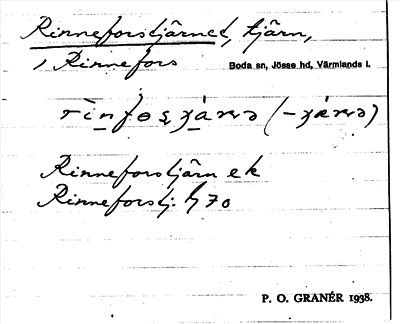 Rinneforstjärnet, tjärn,
i Rinnefors
Boda sn, Jösse hd, Värmlands l.
Rinneforstjärn ek
Rinneforstj. h 70
P. O. GRANÉR 1938.